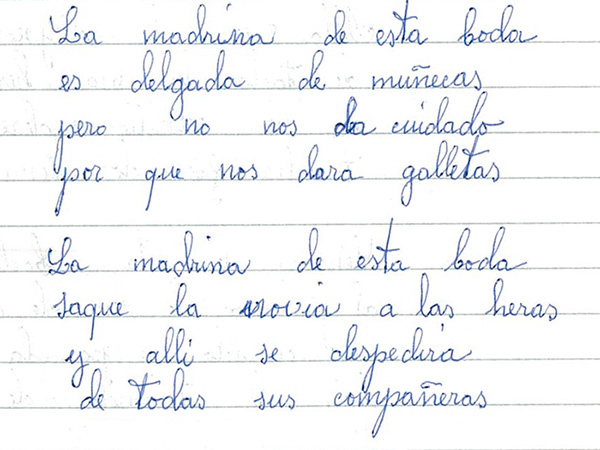 La madrina de esta boda
es delgada de muñecas
pero no nos da cuidado
por que nos dara galletas
La madrina de esta boda
saque la novia a las heras
y alli se despedira
de todas sus compañeras